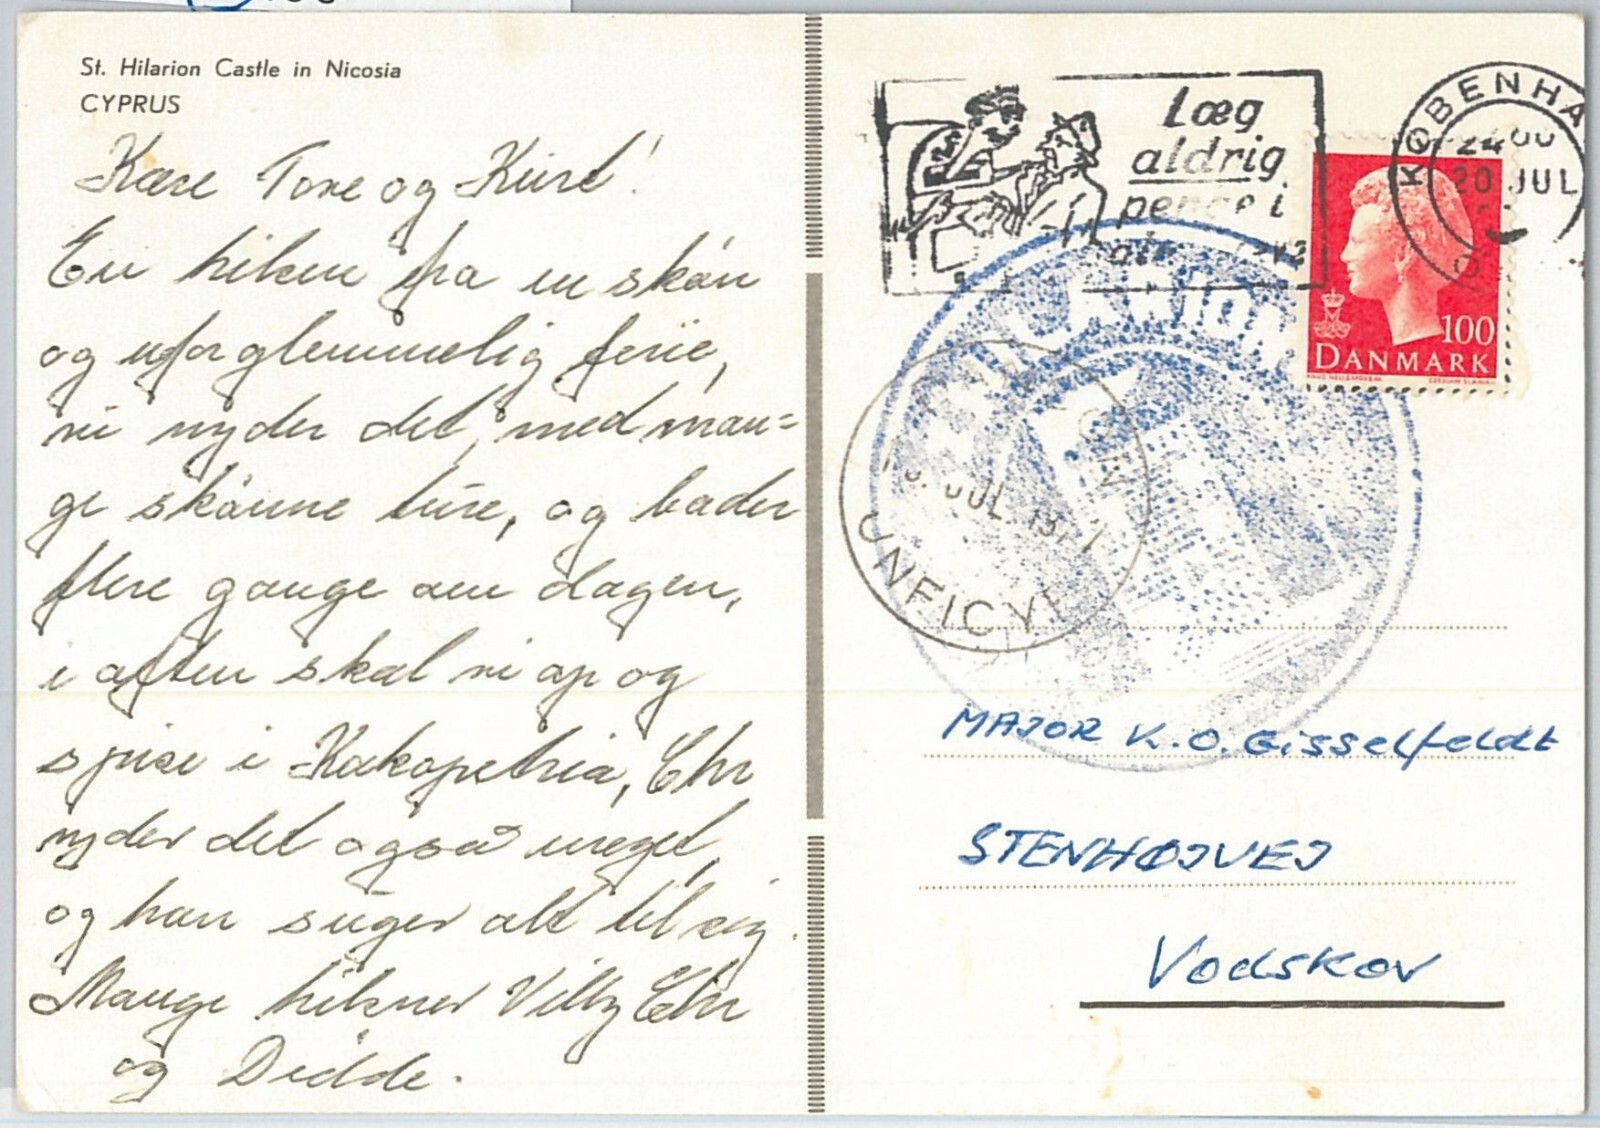 St. Hilarion Castle in Nicosia
CYPRUS
Kære Tove og Kurt!
En hilsen fra en skøn
og uforglemmelig ferie,
vi nyder det, med man=
ge skønne ture, og bader
flere gange om dagen,
i aften skal vi op og
spise i Kakopetria, Chr
nyder det også meget,
og han suger alt til sig.
Mange hilsner Villy Chr
og Didde.
Læg
aldrig
penge i
KØBENHA
20 JUL
100
DANMARK
JUL 197
UNFICYP
MAJOR K.O. Gisselfeldt
STENHØJVEJ
Vodskov